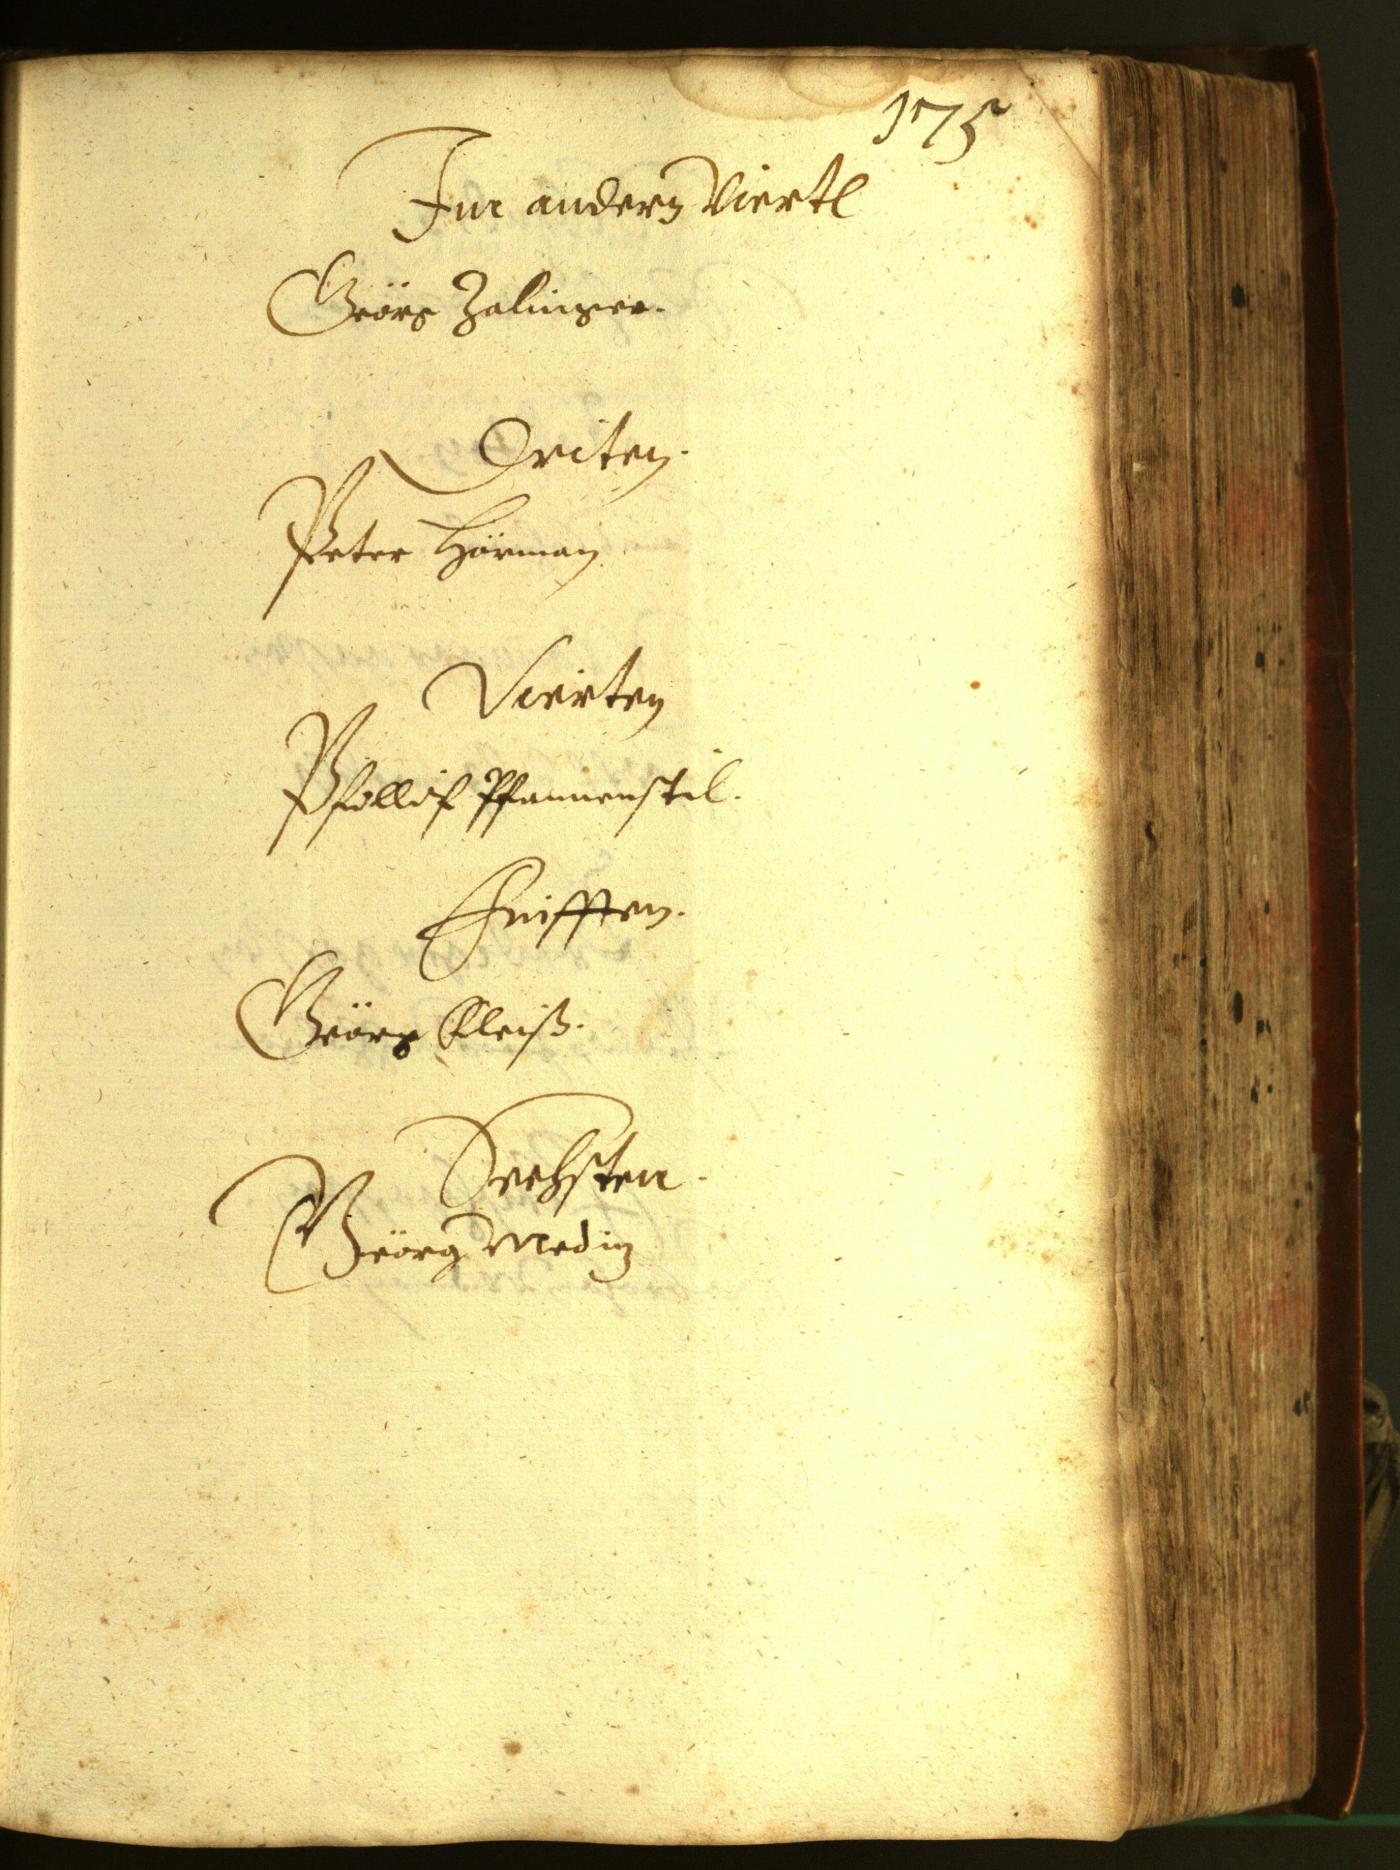 175
Im andern Viertl
Geörg Zalinger.
Driten.
Peter Hörman
Vierten
Pfannenstil.
Fünfften.
Geörg Kleiß.
Sechsten.
Geörg Medin